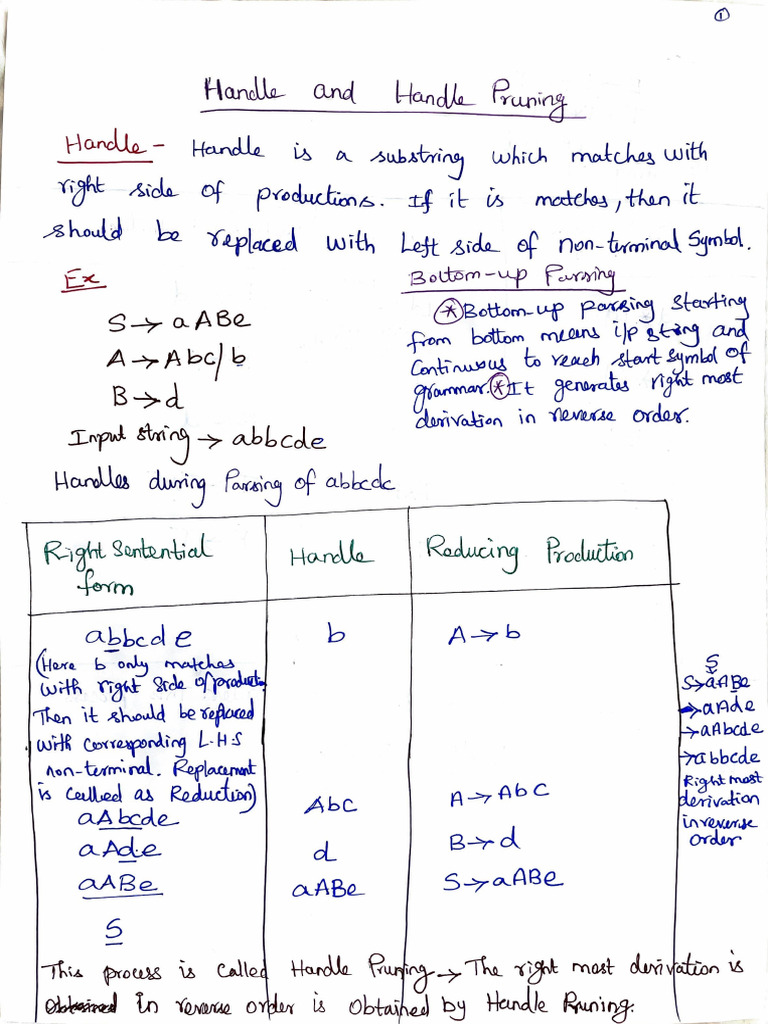 ①
Handle and Handle Pruning
Handle - Handle is a substring which matches with
right side of productions. If it is matches, then it
should be replaced with Left side of non-terminal Symbol.
Ex
S → aABe
A → Abc/b
B → d
Input string → abbcde
Handles during Parsing of abbcdc
Bottom-up Parsing
* Bottom-up parsing starting
from bottom means i/p string and
continuous to reach start symbol of
grammar. * It generates right most
derivation in reverse order.
Right Sentential
form
Handle
Reducing Production
abbcde
b
A → b
(Here b only matches
with right side of product
Then it should be replaced
with corresponding L.H.S
non-terminal. Replacement
is called as Reduction)
aAbcde
Abc
A → Abc
aAde
d
B → d
aABe
aABe
S → aABe
S
S
S → aABe
→ aAde
→ aAbcde
→ abbcde
Right most
derivation
in reverse
order
This process is called Handle Pruning → The right most derivation is
in reverse order is obtained by Handle Pruning.